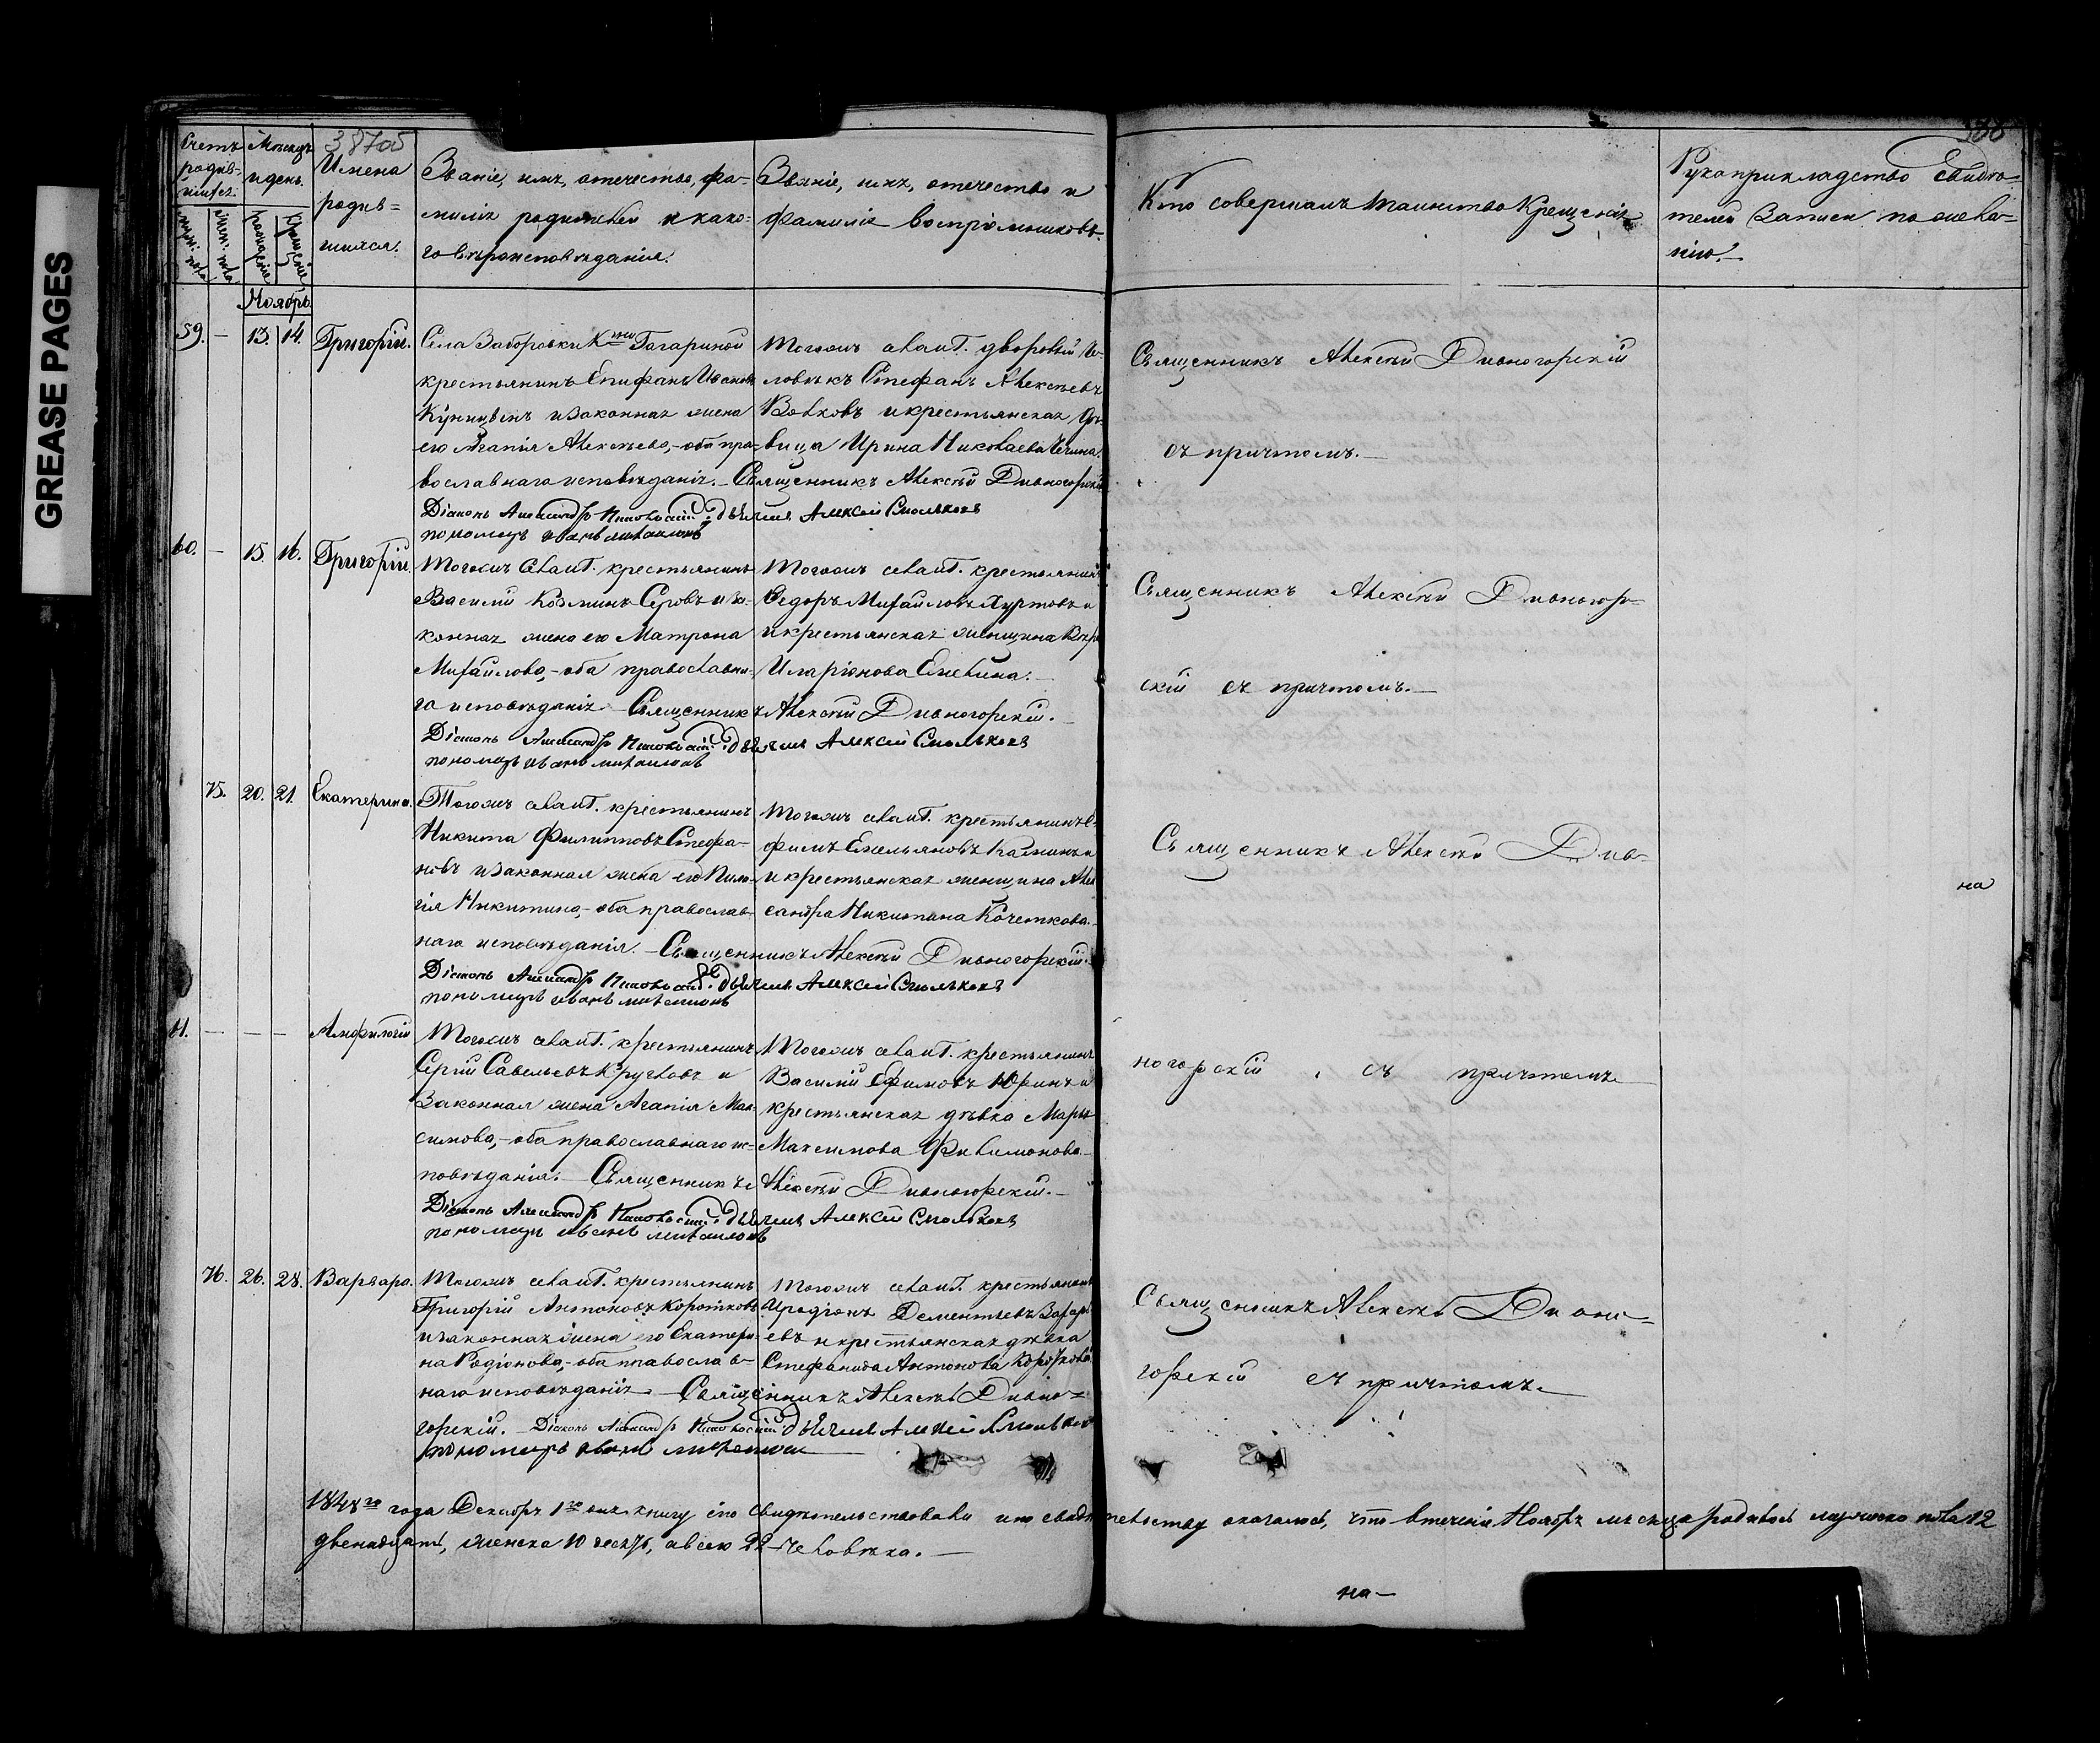 GREASE PAGES
387об
Счетъ родив-шихся.
муж. пола
жен. пола
Мѣсяцъ и день.
рожденіе
крещеніе
Имена
родив-
шихся.
Званіе, имя, отечество, фа-
милія родителей и како-
го вѣроисповѣданія.
Званіе, имя, отечество и
фамилія воспріемниковъ.
Кто совершалъ таинство Крещенія
Рукоприкладство свидѣ-
телей записи по жела-
нію.
Ноябрь
59. — 13. 14. Григорій.
Села Заборовки Гагариной
крестьянинъ Епифанъ Ивановъ
и законная жена
его Агапія Алексѣева,- оба пра-
вославнаго исповѣданія.- Священникъ Алексѣй Дивногорскій
Діаконъ Александръ дьячекъ Алексѣй Смольковъ
пономарь Иванъ Михаиловъ
Тогожъ дворовый че-
ловѣкъ Стефанъ Алексѣевъ
Волковъ и крестьянская дѣ-
вица Ирина Николаева
Священникъ Алексѣй Дивногорскій
съ причтомъ.-
60. — 15. 16. Григорій.
Тогожъ крестьянинъ
Василій Козминъ Серовъ и за-
конная жена его Матрона
Михайлова,- оба православна-
го исповѣданія.- Священникъ Алексѣй Дивногорскій.-
Діаконъ Александръ дьячекъ Алексѣй Смольковъ
пономарь Иванъ Михаиловъ
Тогожъ крестьянинъ
Ѳедоръ Михайловъ Хуртовъ и
и крестьянская женщина
Иларіонова
Священникъ Алексѣй Дивногор-
скій съ причтомъ.-
75. 20. 21. Екатерина.
Тогожъ крестьянинъ
Никита Филипповъ Стефа-
новъ и законная жена его Пела-
гія Никитина,- оба православ-
наго исповѣданія.- Священникъ Алексѣй Дивногорскій.-
Діаконъ Александръ дьячекъ Алексѣй Смольковъ
пономарь Иванъ Михаиловъ
Тогожъ крестьянинъ Е-
фимъ Емельяновъ и
и крестьянская женщина Алек
сандра Никитина Кочеткова.-
Священникъ Алексѣй Див-
на
61. — — — Амфилогій
Тогожъ крестьянинъ
Сергій Савельевъ Кручковъ и
законная жена Агапія Мак-
симова,- оба православнаго ис-
повѣданія.- Священникъ Алексѣй Дивногорскій.-
Діаконъ Александръ дьячекъ Алексѣй Смольковъ
пономарь Иванъ Михаиловъ
Тогожъ крестьянинъ
Василій Ефимовъ Юринъ и
крестьянская дѣвка Марья
Максимова Филимонова.-
ногорскій съ причтомъ.
76. 26. 28. Варвара.
Тогожъ крестьянинъ
Григорій Антоновъ Коротковъ
и законная жена его Екатери-
на Родіонова,- оба православ-
наго исповѣданія.- Священникъ Алексѣй Дивно-
горскій.- Діаконъ Александръ дьячекъ Алексѣй Смольковъ
пономарь Иванъ
Тогожъ крестьянинъ
Иродіонъ Дементьевъ
евъ и крестьянская дѣвка
Стефанида Антонова Короткова
Священникъ Алексѣй Дивно-
горскій съ причтомъ.-
1848го года Декабря 1го дня книгу сію свидѣтельствовали и по свидѣтельству оказалось, что втеченіи Ноября мѣсяца родилось мужеска пола 12
двенадцать, женска 10 десять, а всего 22 человѣка.-
на-